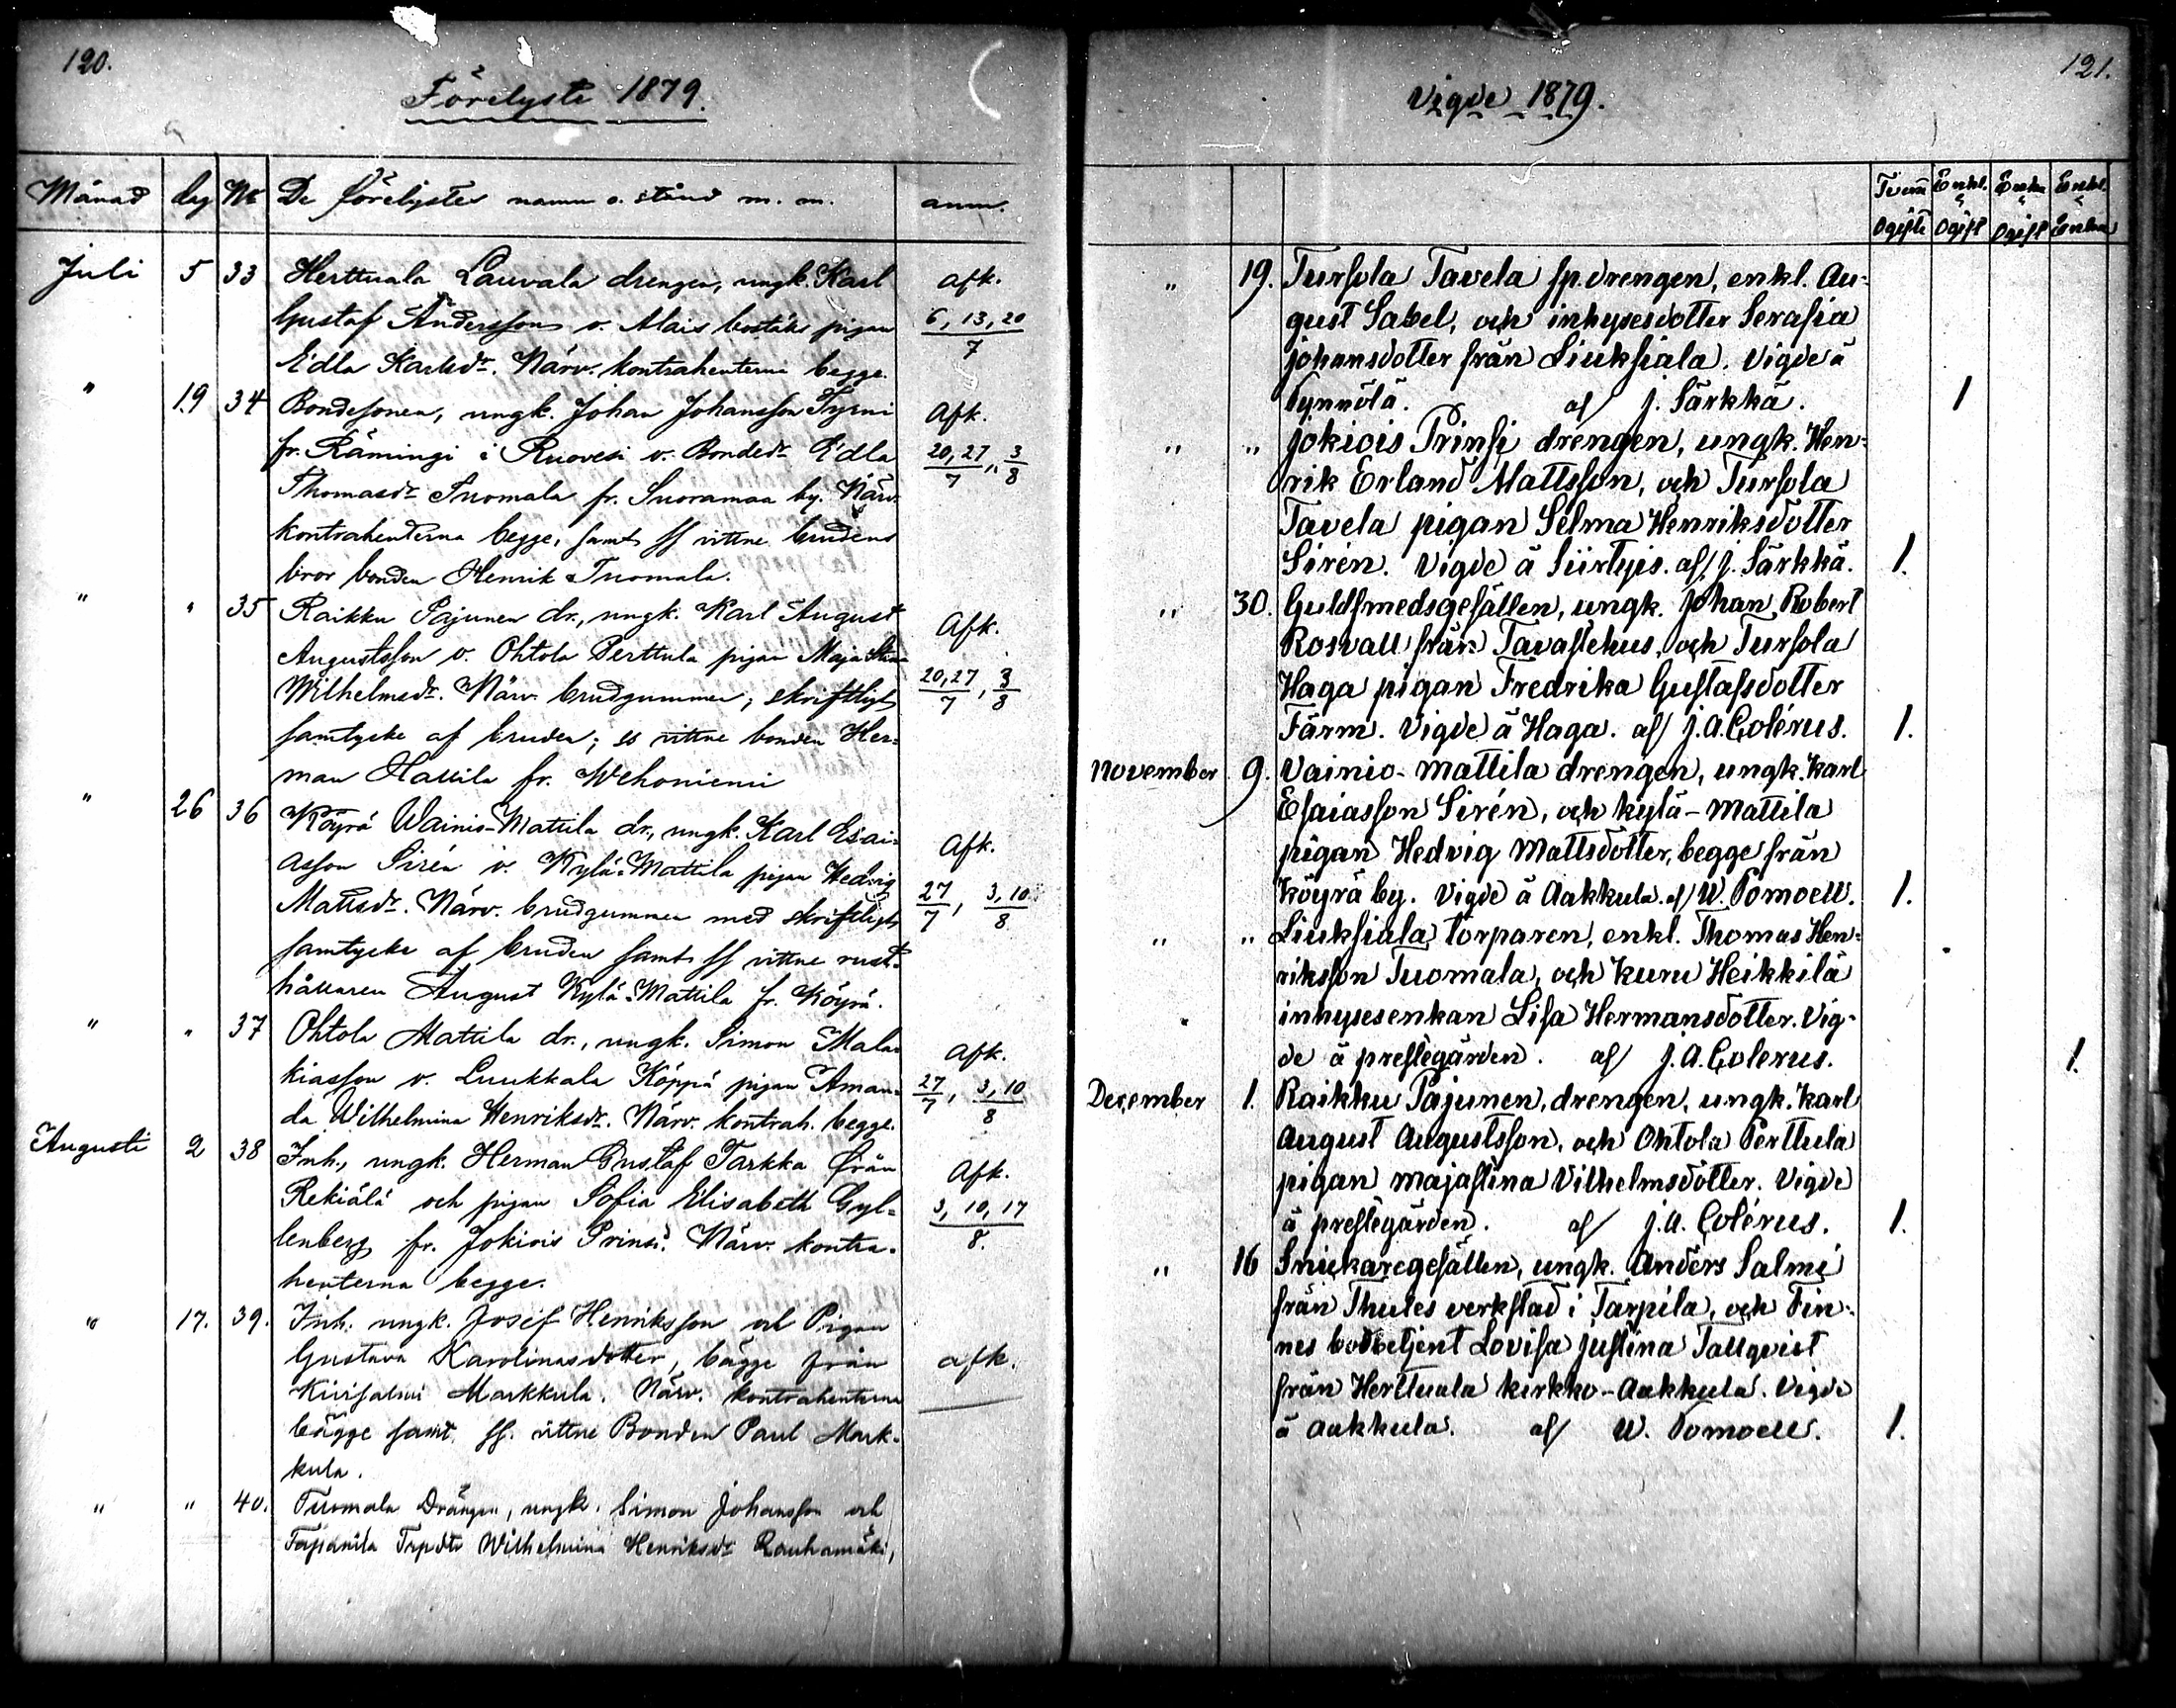 120.
Förelyste 1879.
Månad dag No De förelystes namn o. stånd m. m. anm.
Juli 5 33 Herttuala Lauvala drengen, ungk. Karl afk.
Gustaf Andersson o. Alais bostäls pigan 6, 13, 20
Edla Karlsdr. Närv. kontrahenterna begge. 7
" 19 34 Bondesonen, ungk. Johan Johansson Tyrni Afk.
fr. Rämingi i Ruovesi o. Bondedr Edla 20, 27 , 3
Thomasdr Tuomala fr. Suoramaa by. Närv. 7 8
kontrahenterna begge, samt ss vittne brudens
bror bonden Henrik Tuomala.
" " 35 Raikku Pajunen dr., ungk. Karl August Afk.
Augustsson o. Ohtola Perttula pigan Maja Stina
Wilhelmsdr. Närv. brudgummen; skriftligt 20, 27 , 3
samtycke af bruden; ss vittne bonden Her= 7 8
man Hattila fr. Wehoniemi
" 26 36 Köyrä Wainio-Mattila dr., ungk. Karl Esai= Afk.
asson Sirén o. Kylä-Mattila pigan Hedvig
Mattsdr. Närv. brudgummen med skriftligt 27 , 3, 10
samtycke af bruden samt ss vittne rust= 7 8
hållaren August Kylä-Mattila fr. Köyrä.
" " 37 Ohtola Mattila dr., ungk. Simon Mala= Afk.
kiasson o. Luukkala Köppä pigan Aman= 27 , 3, 10
da Wilhelmina Henriksdr. Närv. kontrah. begge. 7 8
Augusti 2 38 Inh., ungk. Herman Gustaf Tarkka från Afk.
Rekiälä och pigan Sofia Elisabeth Gyl= 3, 10, 17
lenberg fr. Jokiois Prinsi. Närv. kontra= 8.
henterna begge.
" 17. 39. Inh. ungk. Josef Henriksson och Pigan
Gustava Karolinasdotter, bägge från afk.
Kiisalmi Markkula. Närv. kontrahenterna
bägge samt ss. vittne Bonden Paul Mark=
kula.
" " 40. Tuomala Drängen, ungk. Simon Johansson och
Tapanila Trpdtr Wilhelmina Henriksdr Rauhamäki,
121.
Vigde 1879.
Tvenn Enkl. Enka Enkl.
Ogifte Ogift Ogift Enka
" 19. Tursola Tavela sp. drengen, enkl. Au-
gust Sabel, och inhysesdotter Serafia
Johansdotter från Liuksiala. Vigde å
Pynnölä. af J. Särkkä. 1
" " Jokiois Prinsi drengen, ungk. Hen=
rik Erland Mattsson, och Tursola
Tavela pigan Selma Henriksdotter
Sirén. Vigde å Siirtyis. af J. Särkkä. 1.
" 30. Guldsmedsgesällen, ungk. Johan Robert
Rosvall från Tavastehus, och Tursola
Haga pigan Fredrika Gustafsdotter
Färm. Vigde å Haga. af J. A. Colérus. 1.
November 9. Vainio-Mattila drengen, ungk. Karl
Esaiasson Sirén, och Kylä-Mattila
pigan Hedvig Mattsdotter, begge från
Köyrä by. Vigde å Aakkula. af W. Pomoell. 1.
" " Liuksiala torparen, enkl. Thomas Hen=
riksson Tuomala, och Kuru Heikkilä
inhysesenkan Lisa Hermansdotter. Vig-
de å prestegården. af J. A. Colerus. 1.
December 1. Raikku Pajunen, drengen, ungk. Karl
August Augustsson, och Ohtola Perttula
pigan Majastina Vilhelmsdotter. Vigde
å prestegården. af J. A. Colérus. 1.
" 16 Snickaregesällen, ungk. Anders Salmi
från Thules verkstad i Tarpila, och Fin-
nes bodbetjent Lovisa Justina Tallqvist
från Herttuala Kirkko-Aakkula. Vigde
å Aakkula. af W. Pomoell. 1.